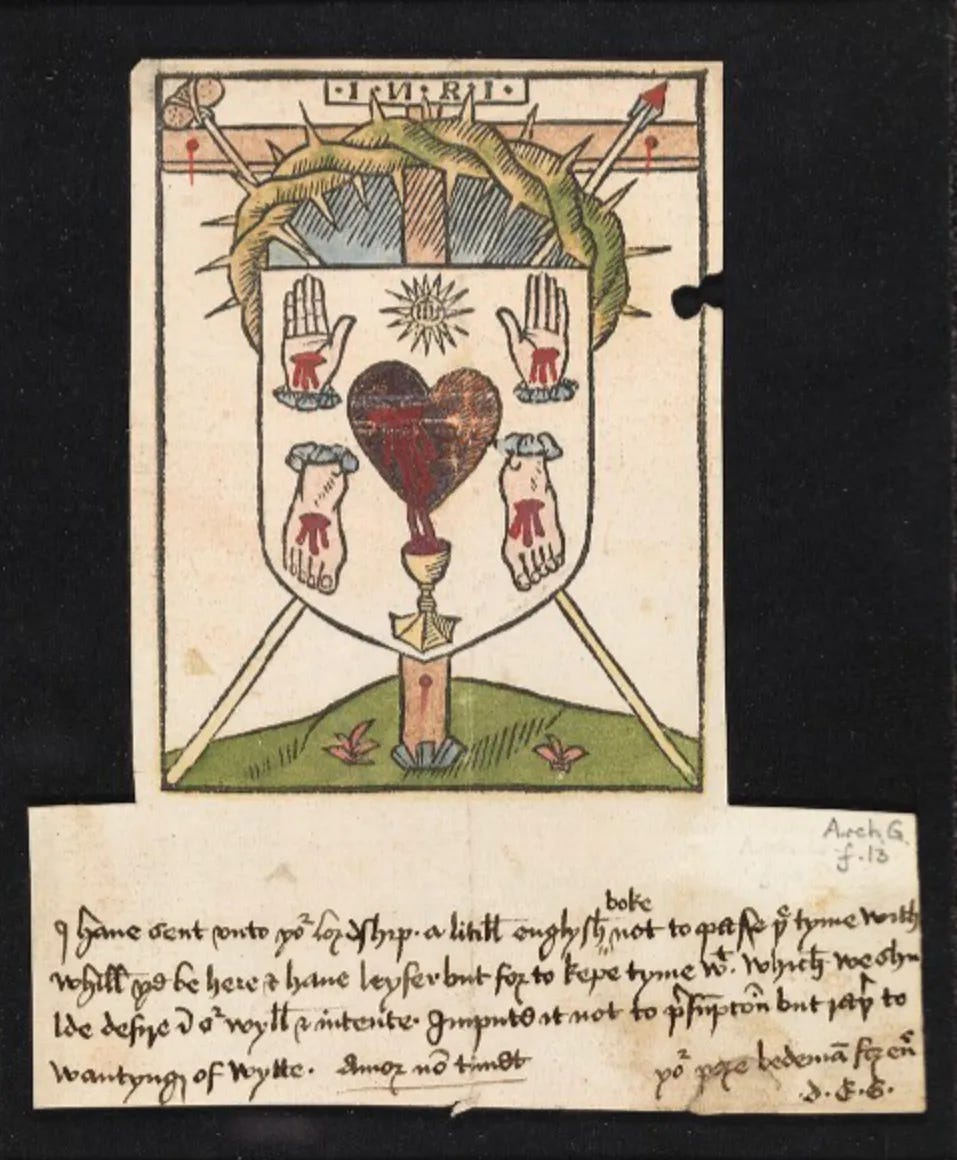 ·I·N·R·I·
ihs
Arch. G.
f. 13
I have sent vnto yor lordship· a litill englysh boke not to passe yͤ tyme with
whill yͤ be here & have leyser but for to kepe tyme wt. which we shu
lde desyre ī or wyll & intente· Imputͤ it not to p̄sūpcōn but to
wantyng of wytte· Amor nō timet
yor pore bedemā for eū
·d·E·S·